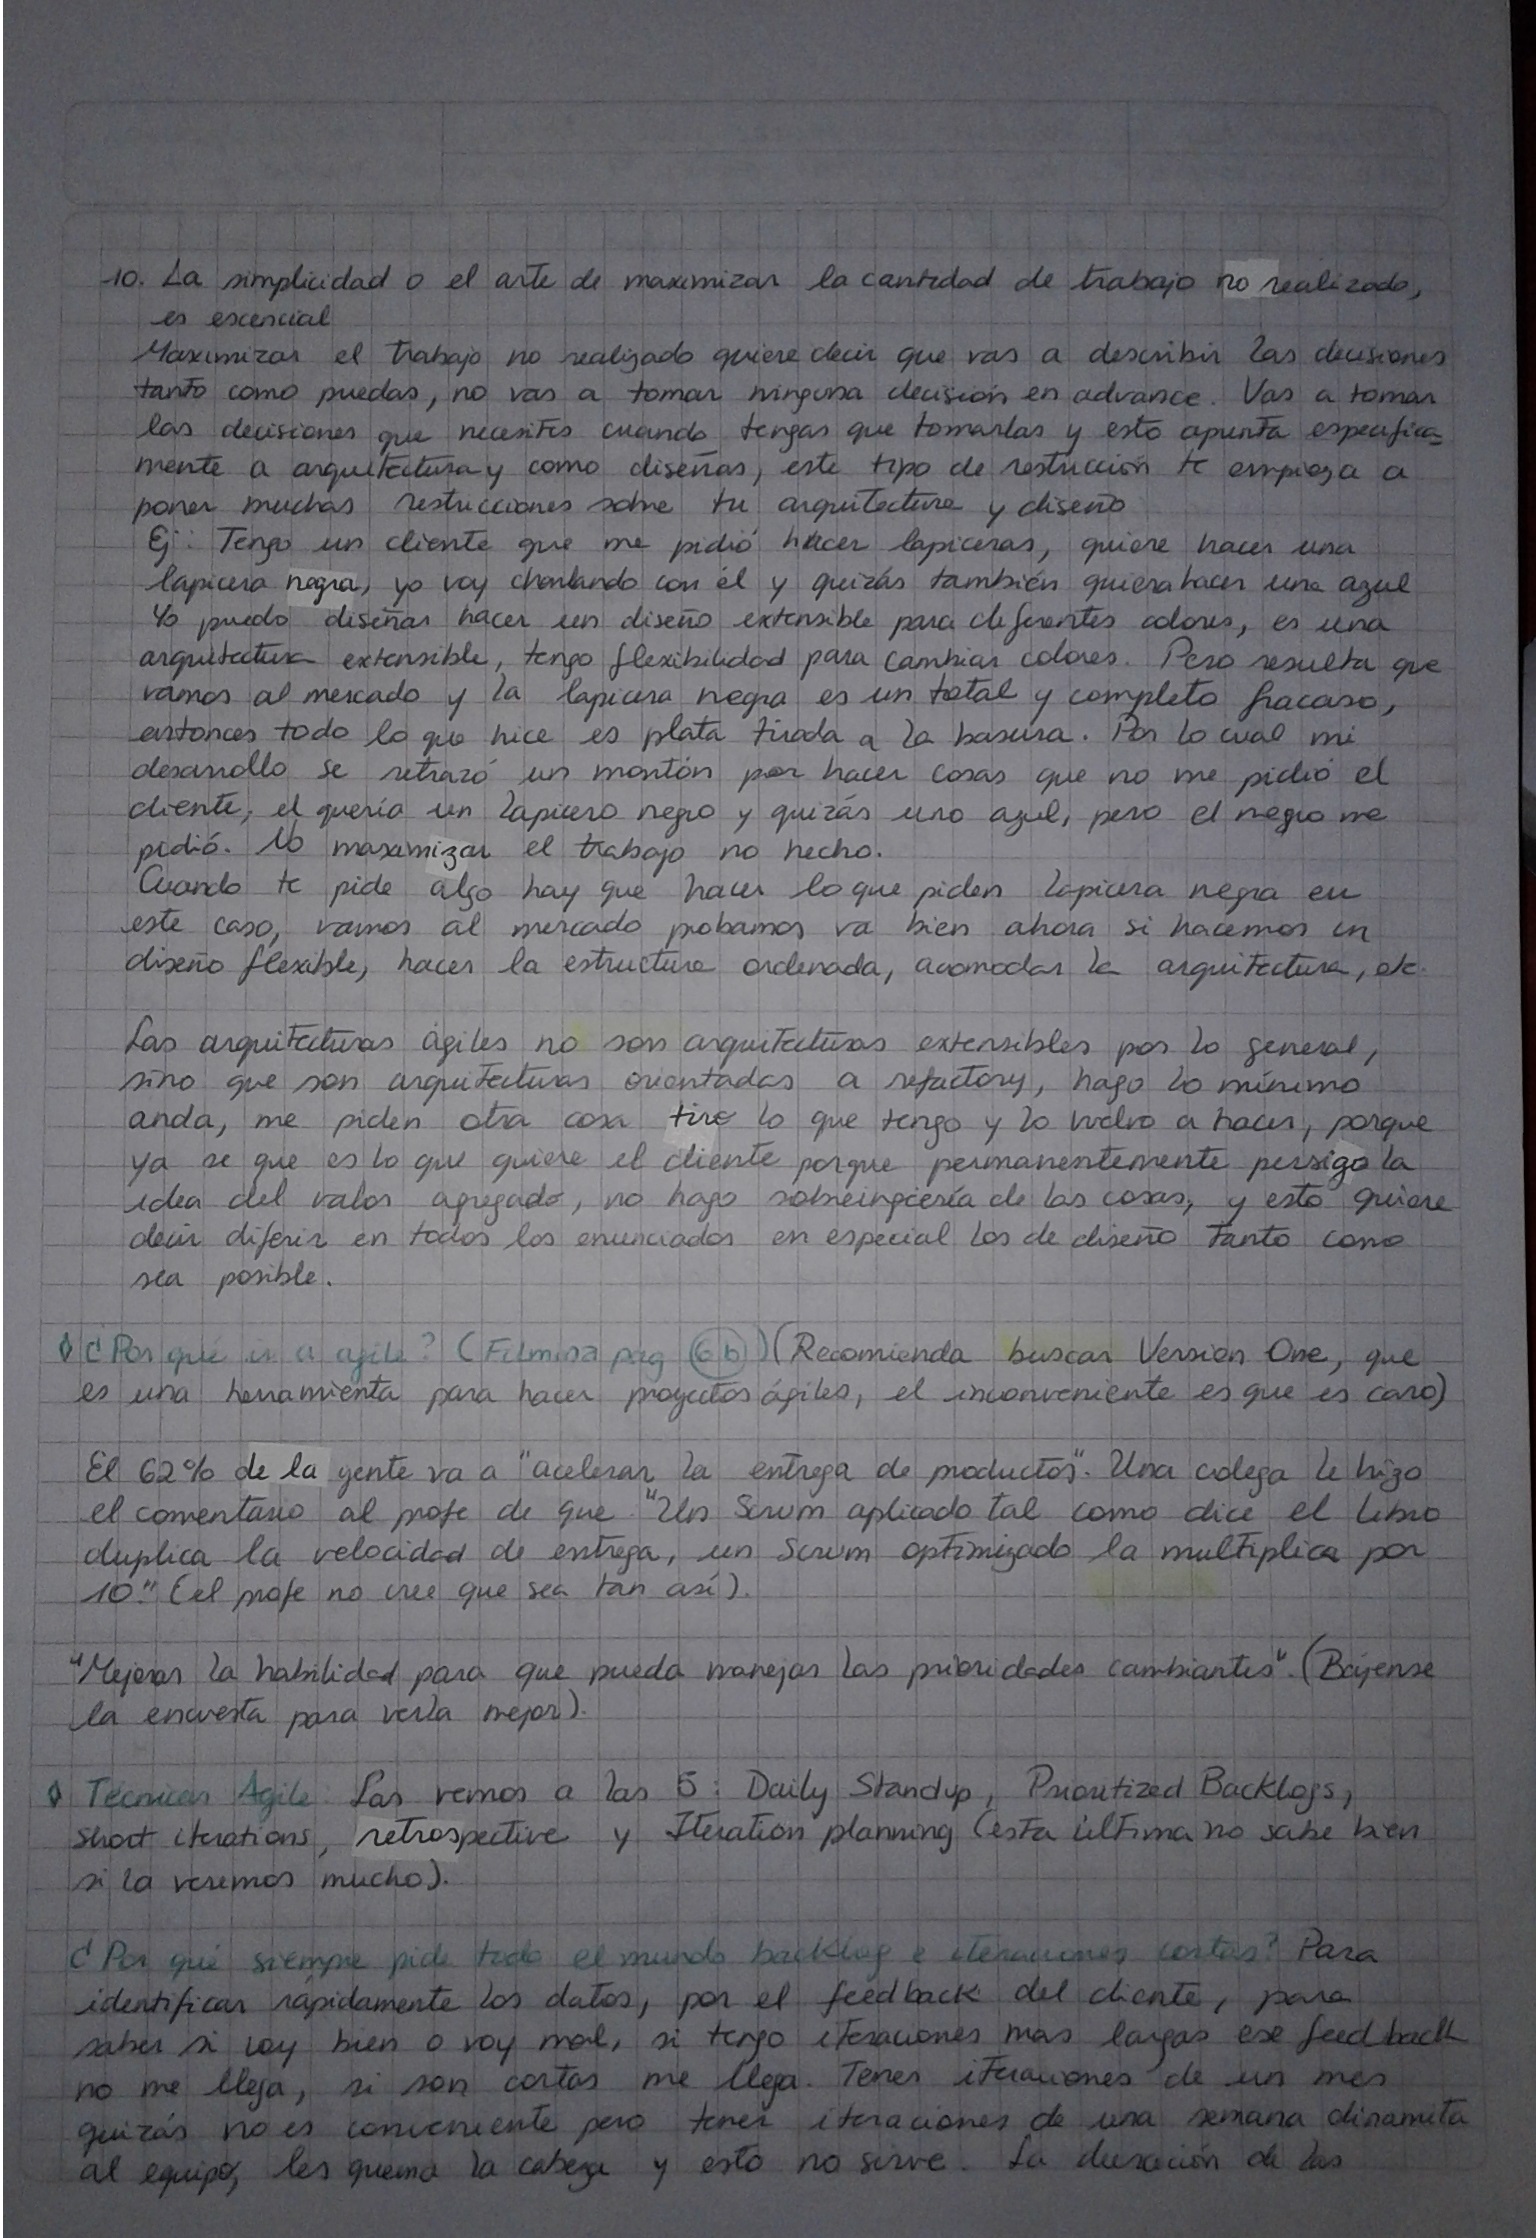 10. La simplicidad o el arte de maximizar la cantidad de trabajo no realizado,
es escencial
Maximizar el trabajo no realizado quiere decir que vas a describir las decisiones
tanto como puedas, no vas a tomar ninguna decisión en advance. Vas a tomar
las decisiones que necesites cuando tengas que tomarlas y esto apunta especifica-
mente a arquitectura y como diseñas, este tipo de restricción te empieza a
poner muchas restricciones sobre tu arquitectura y diseño
Ej: Tengo un cliente que me pidió hacer lapiceras, quiere hacer una
lapicera negra, yo voy charlando con él y quizás también quiera hacer una azul
Yo puedo diseñar hacer un diseño extensible para diferentes colores, es una
arquitectura extensible, tengo flexibilidad para cambiar colores. Pero resulta que
vamos al mercado y la lapicera negra es un total y completo fracaso,
entonces todo lo que hice es plata tirada a la basura. Por lo cual mi
desarrollo se retrazó un montón por hacer cosas que no me pidió el
cliente, el quería un lapicero negro y quizás uno azul, pero el negro me
pidió. No maximizar el trabajo no hecho.
Cuando te pide algo hay que hacer lo que piden lapicera negra en
este caso, vamos al mercado probamos va bien ahora si hacemos un
diseño flexible, hacer la estructura ordenada, acomodar la arquitectura, etc.
Las arquitecturas ágiles no son arquitecturas extensibles por lo general,
sino que son arquitecturas orientadas a refactory, hago lo mínimo
anda, me piden otra cosa tiro lo que tengo y lo vuelvo a hacer, porque
ya se que es lo que quiere el cliente porque permanentemente persigo la
idea del valor agregado, no hago sobreingciería de las cosas, y esto quiere
decir diferir en todos los enunciados en especial los de diseño tanto como
sea posible.
◊ ¿Por qué ir a agile? (Filmina pag 6b) (Recomienda buscar Version One, que
es una herramienta para hacer proyectos ágiles, el inconveniente es que es caro)
El 62% de la gente va a "acelerar la entrega de productos". Una colega le hizo
el comentario al profe de que "Un Scrum aplicado tal como dice el libro
duplica la velocidad de entrega, un Scrum optimizado la multiplica por
10." (el profe no cree que sea tan así).
"Mejorar la habilidad para que pueda manejar las prioridades cambiantes". (Bájense
la encuesta para verla mejor).
◊ Técnicas Agile: Las vemos a las 5: Daily Standup, Prioritized Backlogs,
short iterations, retrospective y Iteration planning (esta última no sabe bien
si la veremos mucho).
¿Por qué siempre pide todo el mundo backlog e iteraciones cortas? Para
identificar rápidamente los datos, por el feedback del cliente, para
saber si voy bien o voy mal, si tengo iteraciones mas largas ese feedback
no me llega, si son cortas me llega. Tener iteraciones de un mes
quizás no es conveniente pero tener iteraciones de una semana dinamita
al equipo, les quema la cabeza y esto no sirve. La duración de las